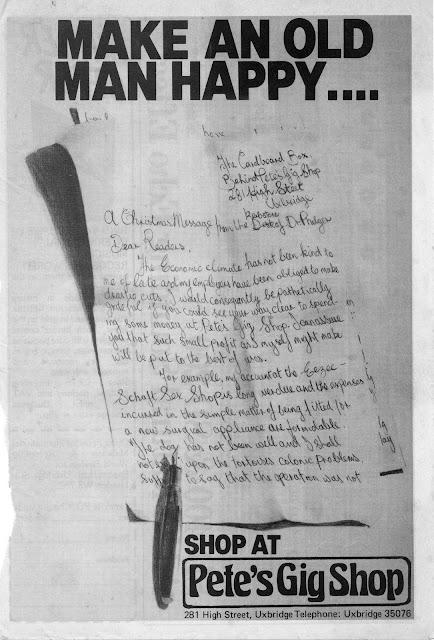 MAKE AN OLD
MAN HAPPY....
The Cardboard Box,
Behind Pete's Gig Shop
281 High Street
Uxbridge
A Christmas Message from the Desk of D. Phelger
Dear Readers,
The Economic climate has not been kind to
me of late and my employers have been obliged to make
drastic cuts. I would consequently be pathetically
grateful if you could see your way clear to spend-
ing some money at Pete's Gig Shop. I can assure
you that such small profit as myself might make
will be put to the best of uses.
For example, my account at the Eezee-
Schaft Sex Shop is long overdue and the expenses
incurred in the simple matter of being fitted for
a new surgical appliance are formidable
The dog has not been well and I shall
not upon the tortoises colonic problems.
to say that the operation was not
SHOP AT
Pete's Gig Shop
281 High Street, Uxbridge Telephone: Uxbridge 35076